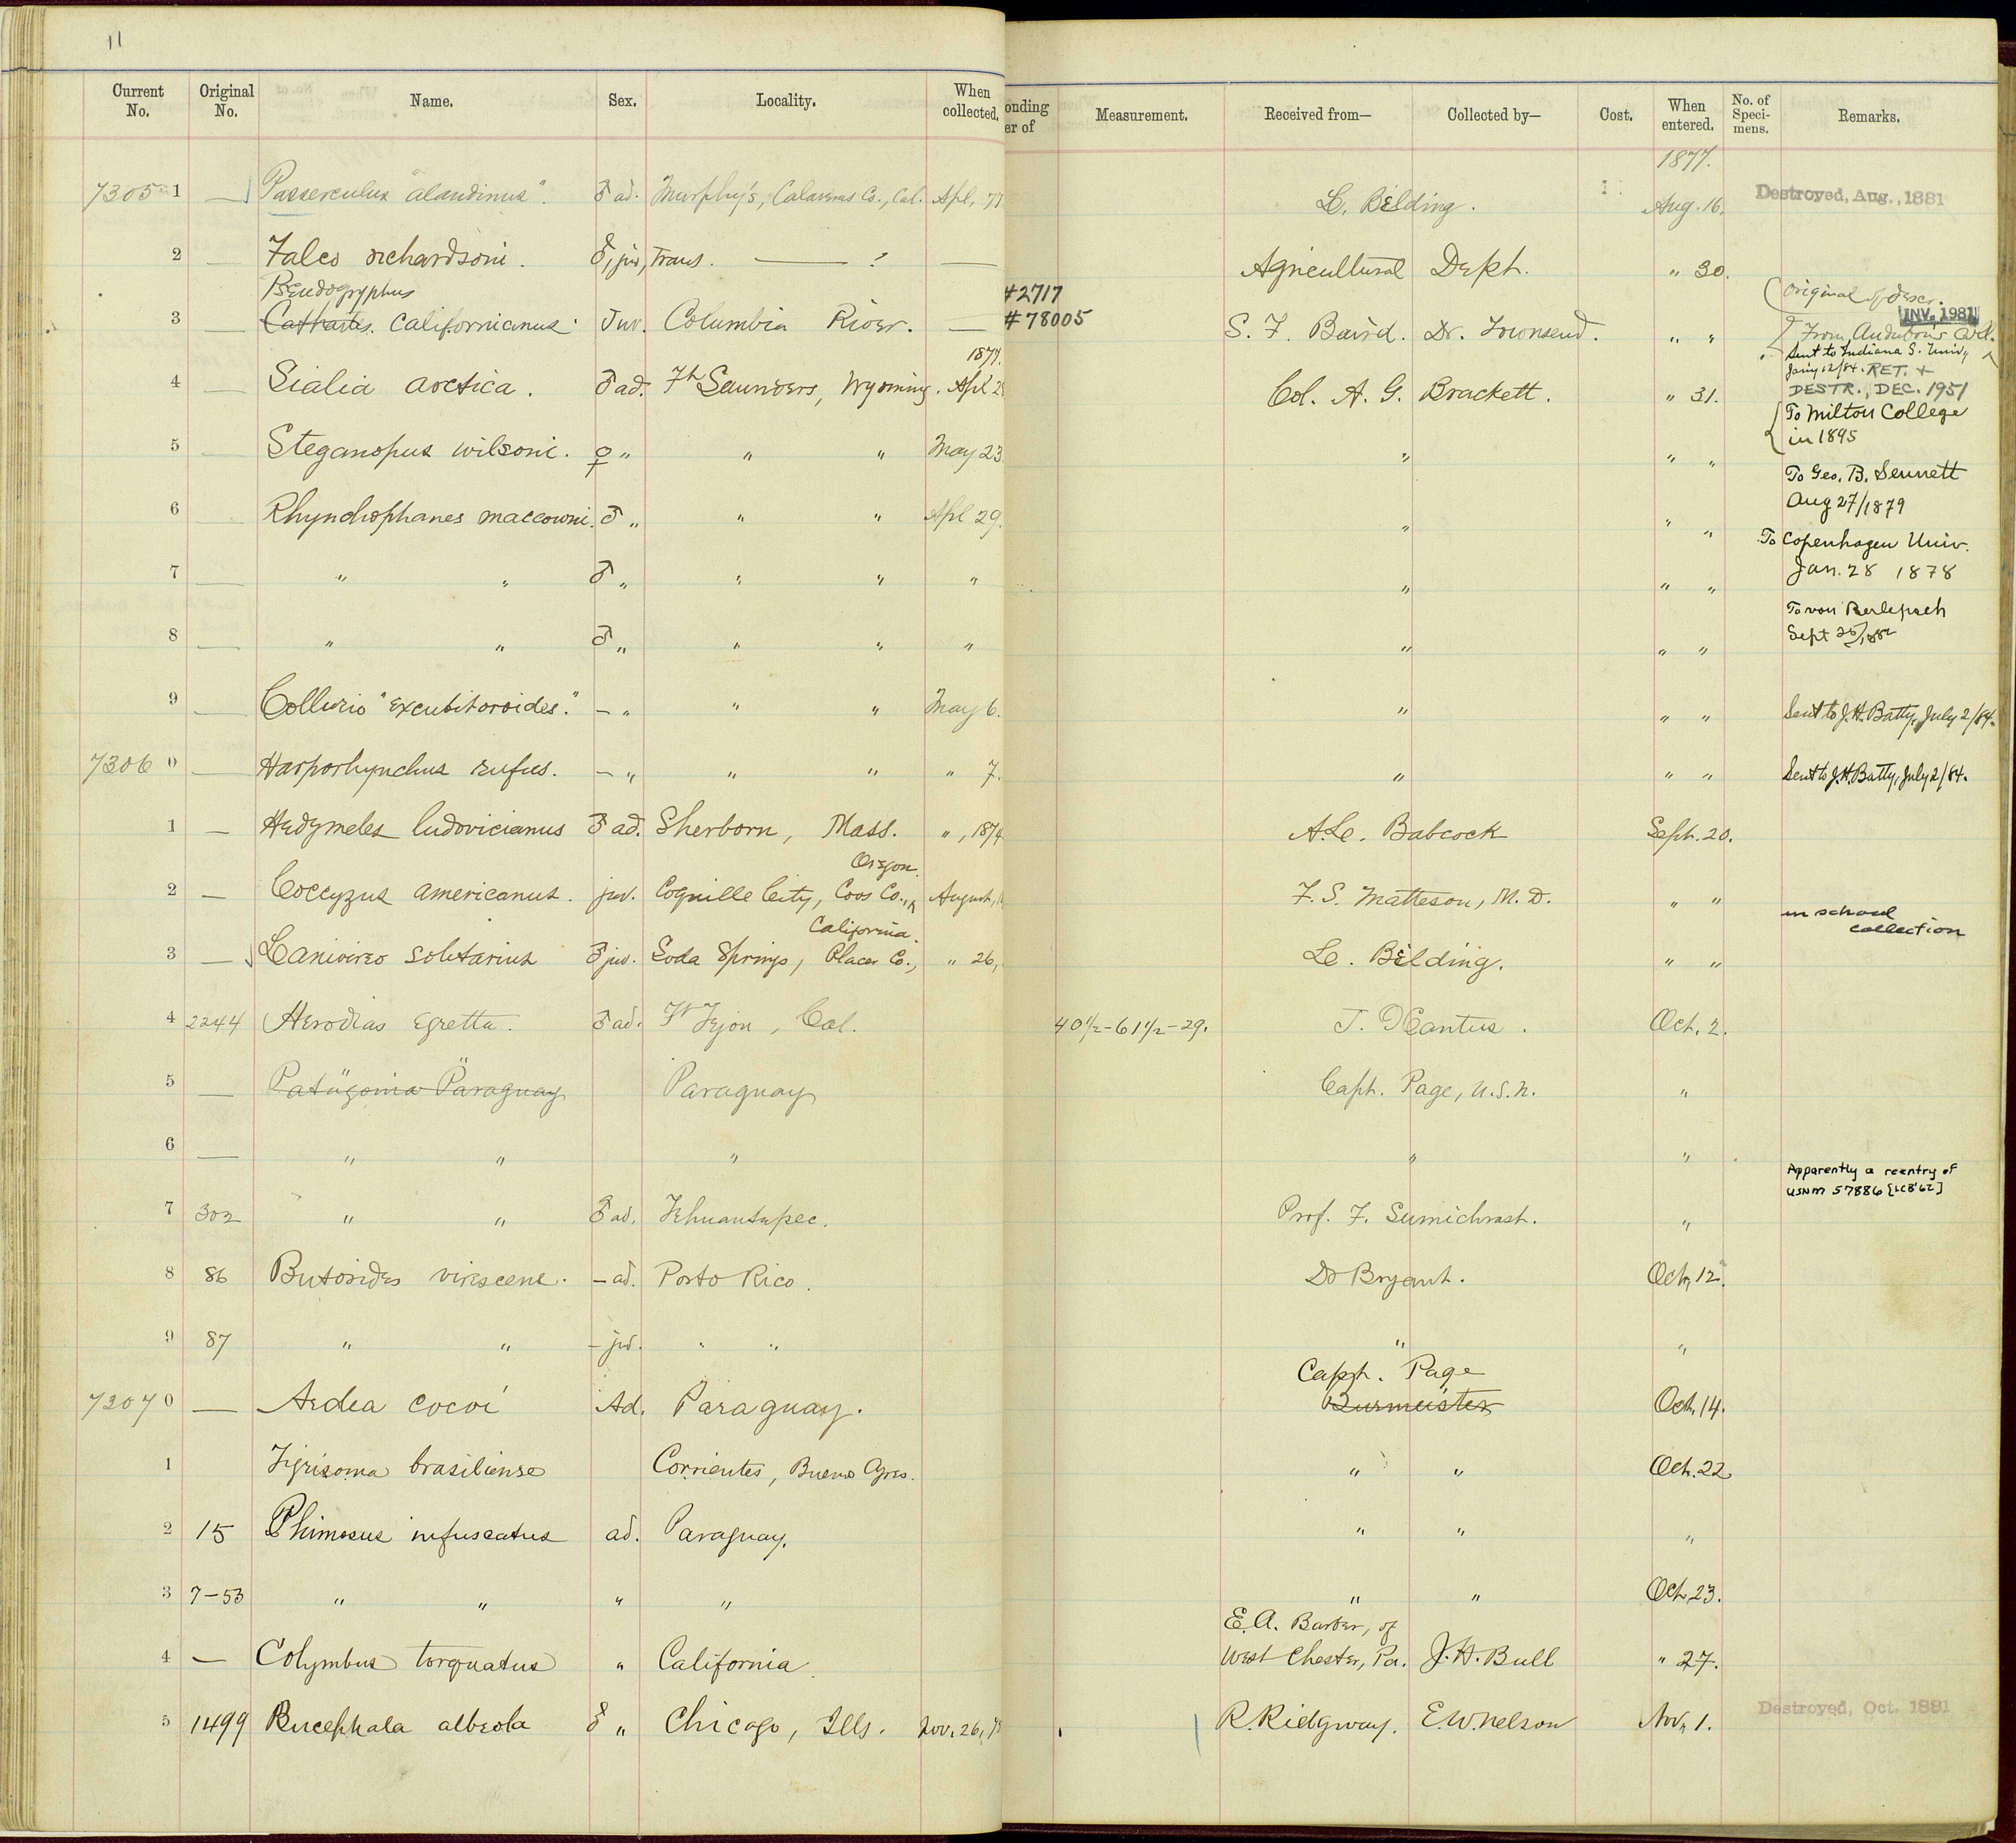 11
Current No. Original No. Name. Sex. Locality. When collected.
7305 1 — Passerculus "alaudinus". ♂ ad. Murphy's, Calaveras Co., Cal. Apl. 77
2 — Falco richardsoni. ♂, juv, Trans. — ? —
Pseudogryphus
3 — Cathartes. Californianus. Juv. Columbia River. —
1877.
4 — Sialia arctica. ♂ ad. Ft Saunders, Wyoming. Apl 2
5 — Steganopus wilsoni. ♀ " " " May 23
6 — Rhynchophanes maccowni. ♂ " " " Apl 29.
7 — " " ♂ " " " "
8 — " " ♂ " " " "
9 — Collurio "excubitoroides." – " " " May 6.
7306 0 — Harporhynchus rufus. – " " " " 7.
1 — Hedymeles ludovicianus ♂ ad. Sherborn, Mass. ", 1874
Oregon.
2 — Coccyzus americanus. juv. Coquille City, Coos Co., August,
California.
3 — Lanivireo solitarius ♂ juv. Soda Springs, Placer Co., " 26,
4 2244 Herodias egretta. ♂ ad. Ft Tejon, Cal.
5 — Patagonia Paraguay Paraguay
6 — " " "
7 302 " " ♂ ad. Tehuantepec.
8 86 Butorides virescens. – ad. Porto Rico.
9 87 " " – juv. " "
7307 0 — Ardea cocoi Ad. Paraguay.
1 Tigrisoma brasiliense Corrientes, Buenos Ayres.
2 15 Phimosus infuscatus ad. Paraguay.
3 7–53 " " " "
4 — Colymbus torquatus " California.
5 1499 Bucephala albeola ♂ " Chicago, Ills. Nov. 26,
onding er of Measurement. Received from— Collected by— Cost. When entered. No. of Speci-mens. Remarks.
1877.
L. Belding. Aug. 16. Destroyed, Aug., 1881
Agricultural Dept. " 30.
#2717
#78005 S. F. Baird. Dr. Townsend. " "
Original of descr.
INV. 1981
From Audubon's Coll.
Sent to Indiana S. Univ,
Jan'y 12/84. RET. +
DESTR., DEC. 1951
Col. A. G. Brackett. " 31.
To Milton College
in 1895
" " "
To Geo. B. Sennett
Aug 27/1879
" " "
To Copenhagen Univ.
Jan. 28 1878
" " "
To von Berlepsch
Sept 25/1882
" " "
" " " Sent to J.H. Batty, July 2/84.
" " " Sent to J.H. Batty, July 2/84.
A. L. Babcock Sept. 20.
F. S. Matteson, M. D. " "
in school
collection
L. Belding. " "
40 1/2–61 1/2–29. J. Xantus. Oct. 2.
Capt. Page, U.S.N. "
" "
Apparently a reentry of
USNM 57886 [LCB'62]
Prof. F. Sumichrast. "
Dr Bryant. Oct. 12.
" "
Capt. Page
Burmeister Oct. 14.
" " Oct. 22
" " "
" " Oct. 23.
E. A. Barber, of
West Chester, Pa. J. H. Bull " 27.
R. Ridgway. E.W. Nelson Nov. 1. Destroyed, Oct. 1881